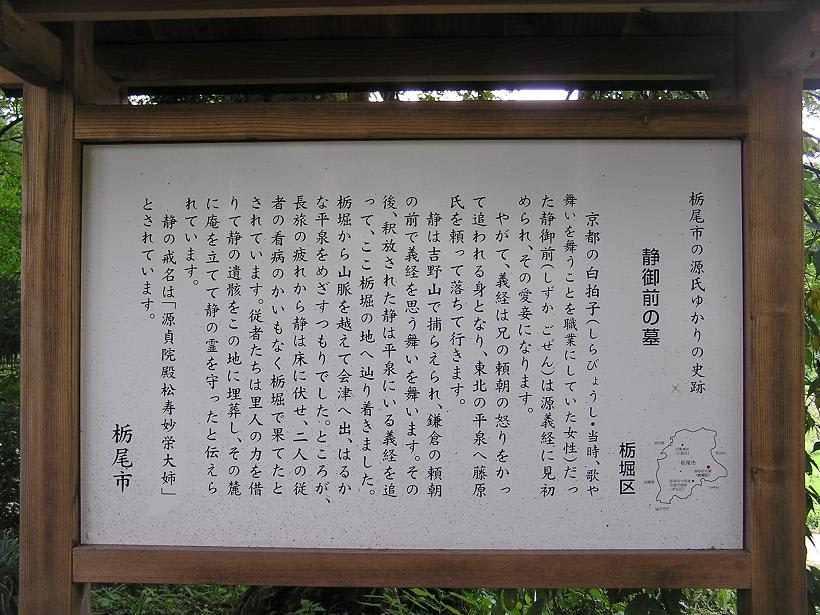 栃尾市の源氏ゆかりの史跡
静御前の墓
栃堀区
京都の白拍子(しらびょうし・当時、歌や
舞いを舞うことを職業にしていた女性)だっ
た静御前(しずか ごぜん)は源義経に見初
められ、その愛妾になります。
やがて、義経は兄の頼朝の怒りをかっ
て追われる身となり、東北の平泉へ藤原
氏を頼って落ちて行きます。
静は吉野山で捕らえられ、鎌倉の頼朝
の前で義経を思う舞いを舞います。その
後、釈放された静は平泉にいる義経を追
って、ここ栃堀の地へ辿り着きました。
栃堀から山脈を越えて会津へ出、はるか
な平泉をめざすつもりでした。ところが、
長旅の疲れから静は床に伏せ、二人の従
者の看病のかいもなく栃堀で果てたと
されています。従者たちは里人の力を借
りて静の遺骸をこの地に埋葬し、その麓
に庵を立てて静の霊を守ったと伝えら
れています。
静の戒名は「源貞院殿松寿妙栄大姉」
とされています。
栃尾市
栃尾市